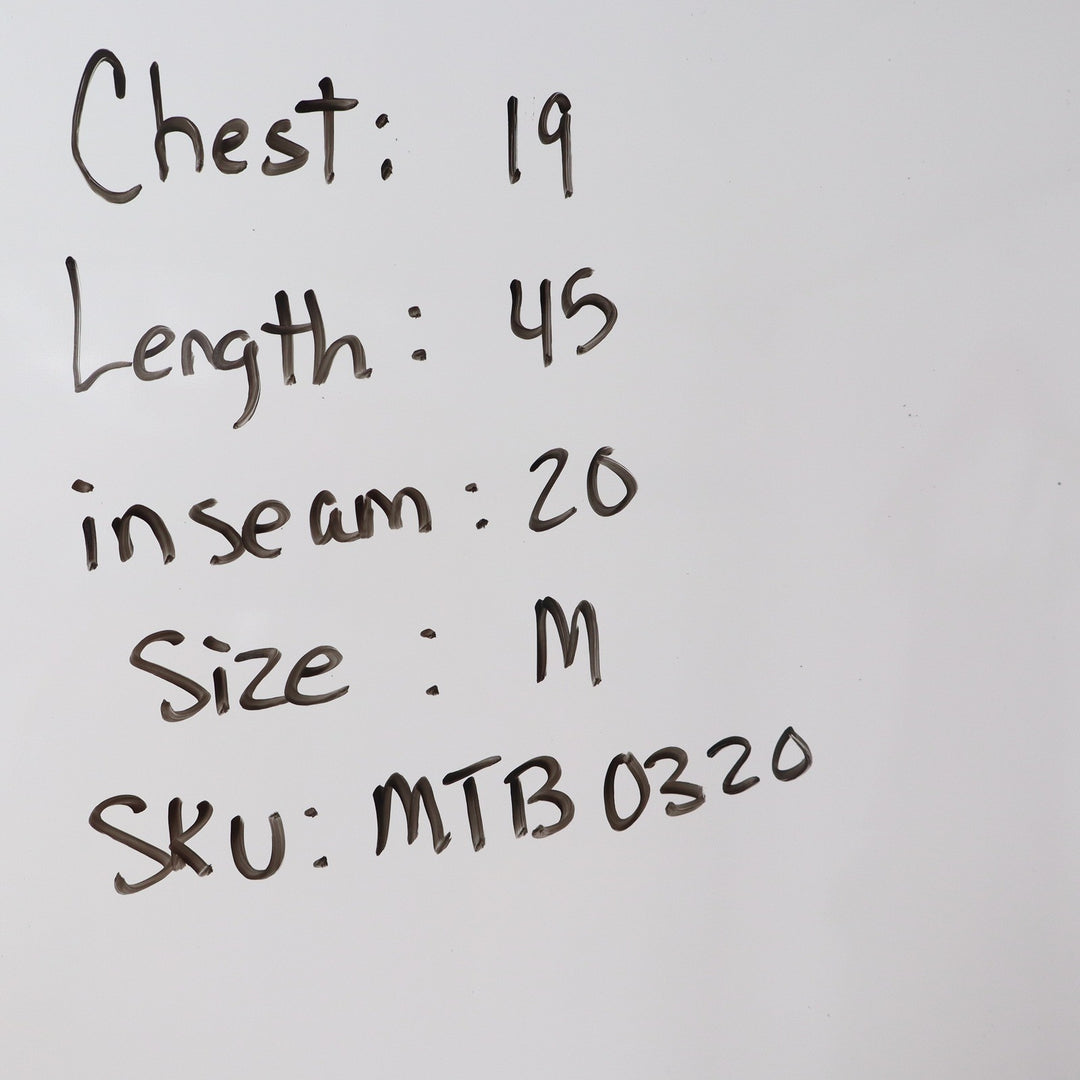 Chest: 19
Length: 45
inseam: 20
Size: M
SKU: MTB0320